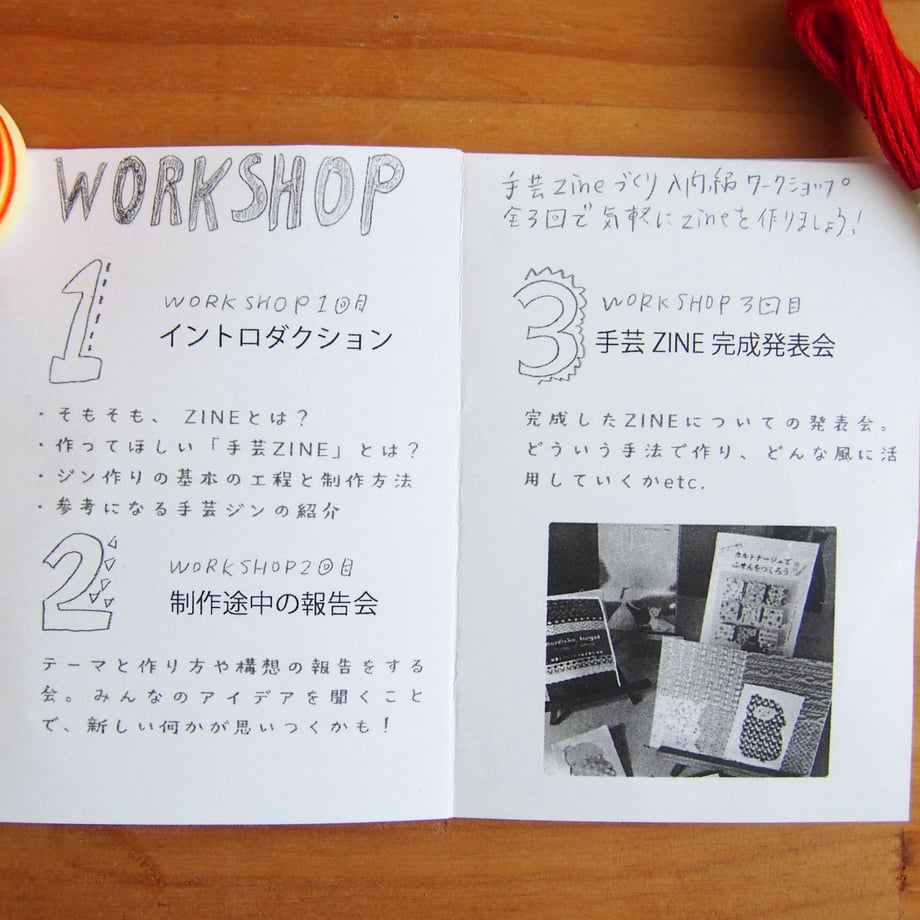 WORKSHOP
WORKSHOP1回目
イントロダクション
・そもそも、ZINEとは？
・作ってほしい「手芸ZINE」とは？
・ジン作りの基本の工程と制作方法
・参考になる手芸ジンの紹介
WORKSHOP2回目
制作途中の報告会
テーマと作り方や構想の報告をする
会。みんなのアイデアを聞くこと
で、新しい何かが思いつくかも！
手芸zineづくり入門編ワークショップ。
全3回で気軽にzineを作りましょう！
WORKSHOP3回目
手芸ZINE完成発表会
完成したZINEについての発表会。
どういう手法で作り、どんな風に活
用していくかetc.
カルトナージュで
ふせんをつくろう